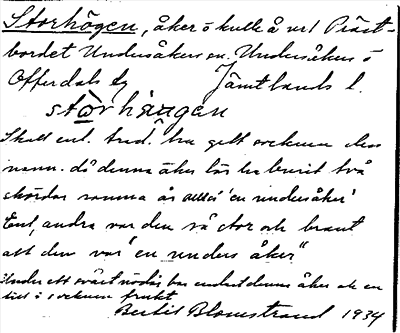 Storhögen, åker ö kulle å vr1 Präst-
bordet Undersåkers sn. Undersåkers o
Offerdals tg Jämtlands l.
stòrhǻugen
Skall enl. trad. ha gett socknen dess
namn. då denna åker lär ha burit två
skördar samma år alltså 'en undersåker'
Enl. andra var den så stor och brant
att den var "en unders åker"
Under ett svårt nödår bar endast denna åker och en
till i socknen frukt
Bertil Blomstrand 1934